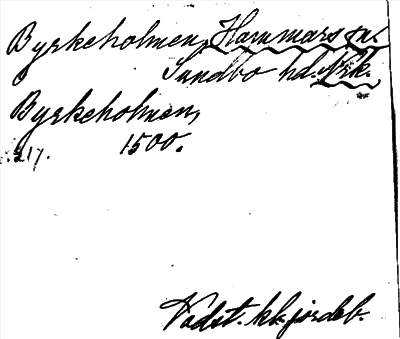 Byrkeholmen, Hammars sn.
Sundbo hd. Nrk.
Byrkeholmen,
217. 1500.
Vadst. kl. jordeb.